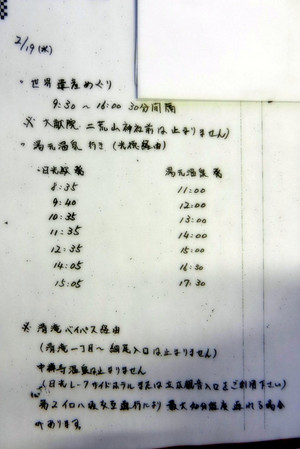 2/19(水)
・世界遺産めぐり
9:30 〜 16:00 30分間隔
※ 大猷院・二荒山神社前は止まりません)
・湯元温泉 行き (光徳経由)
日光駅 発 湯元温泉 着
8:35 11:00
9:40 12:00
10:35 13:00
11:35 14:00
12:35 15:00
14:05 16:30
15:05 17:30
※ 清滝バイパス経由
(清滝一丁目〜 細尾入口は止まりません)
中禅寺温泉は止まりません
(日光レークサイドホテル または 立木観音入口をご利用下さい)
第2イロハ坂交互通行により 最大40分程度 遅れる場合
があります。